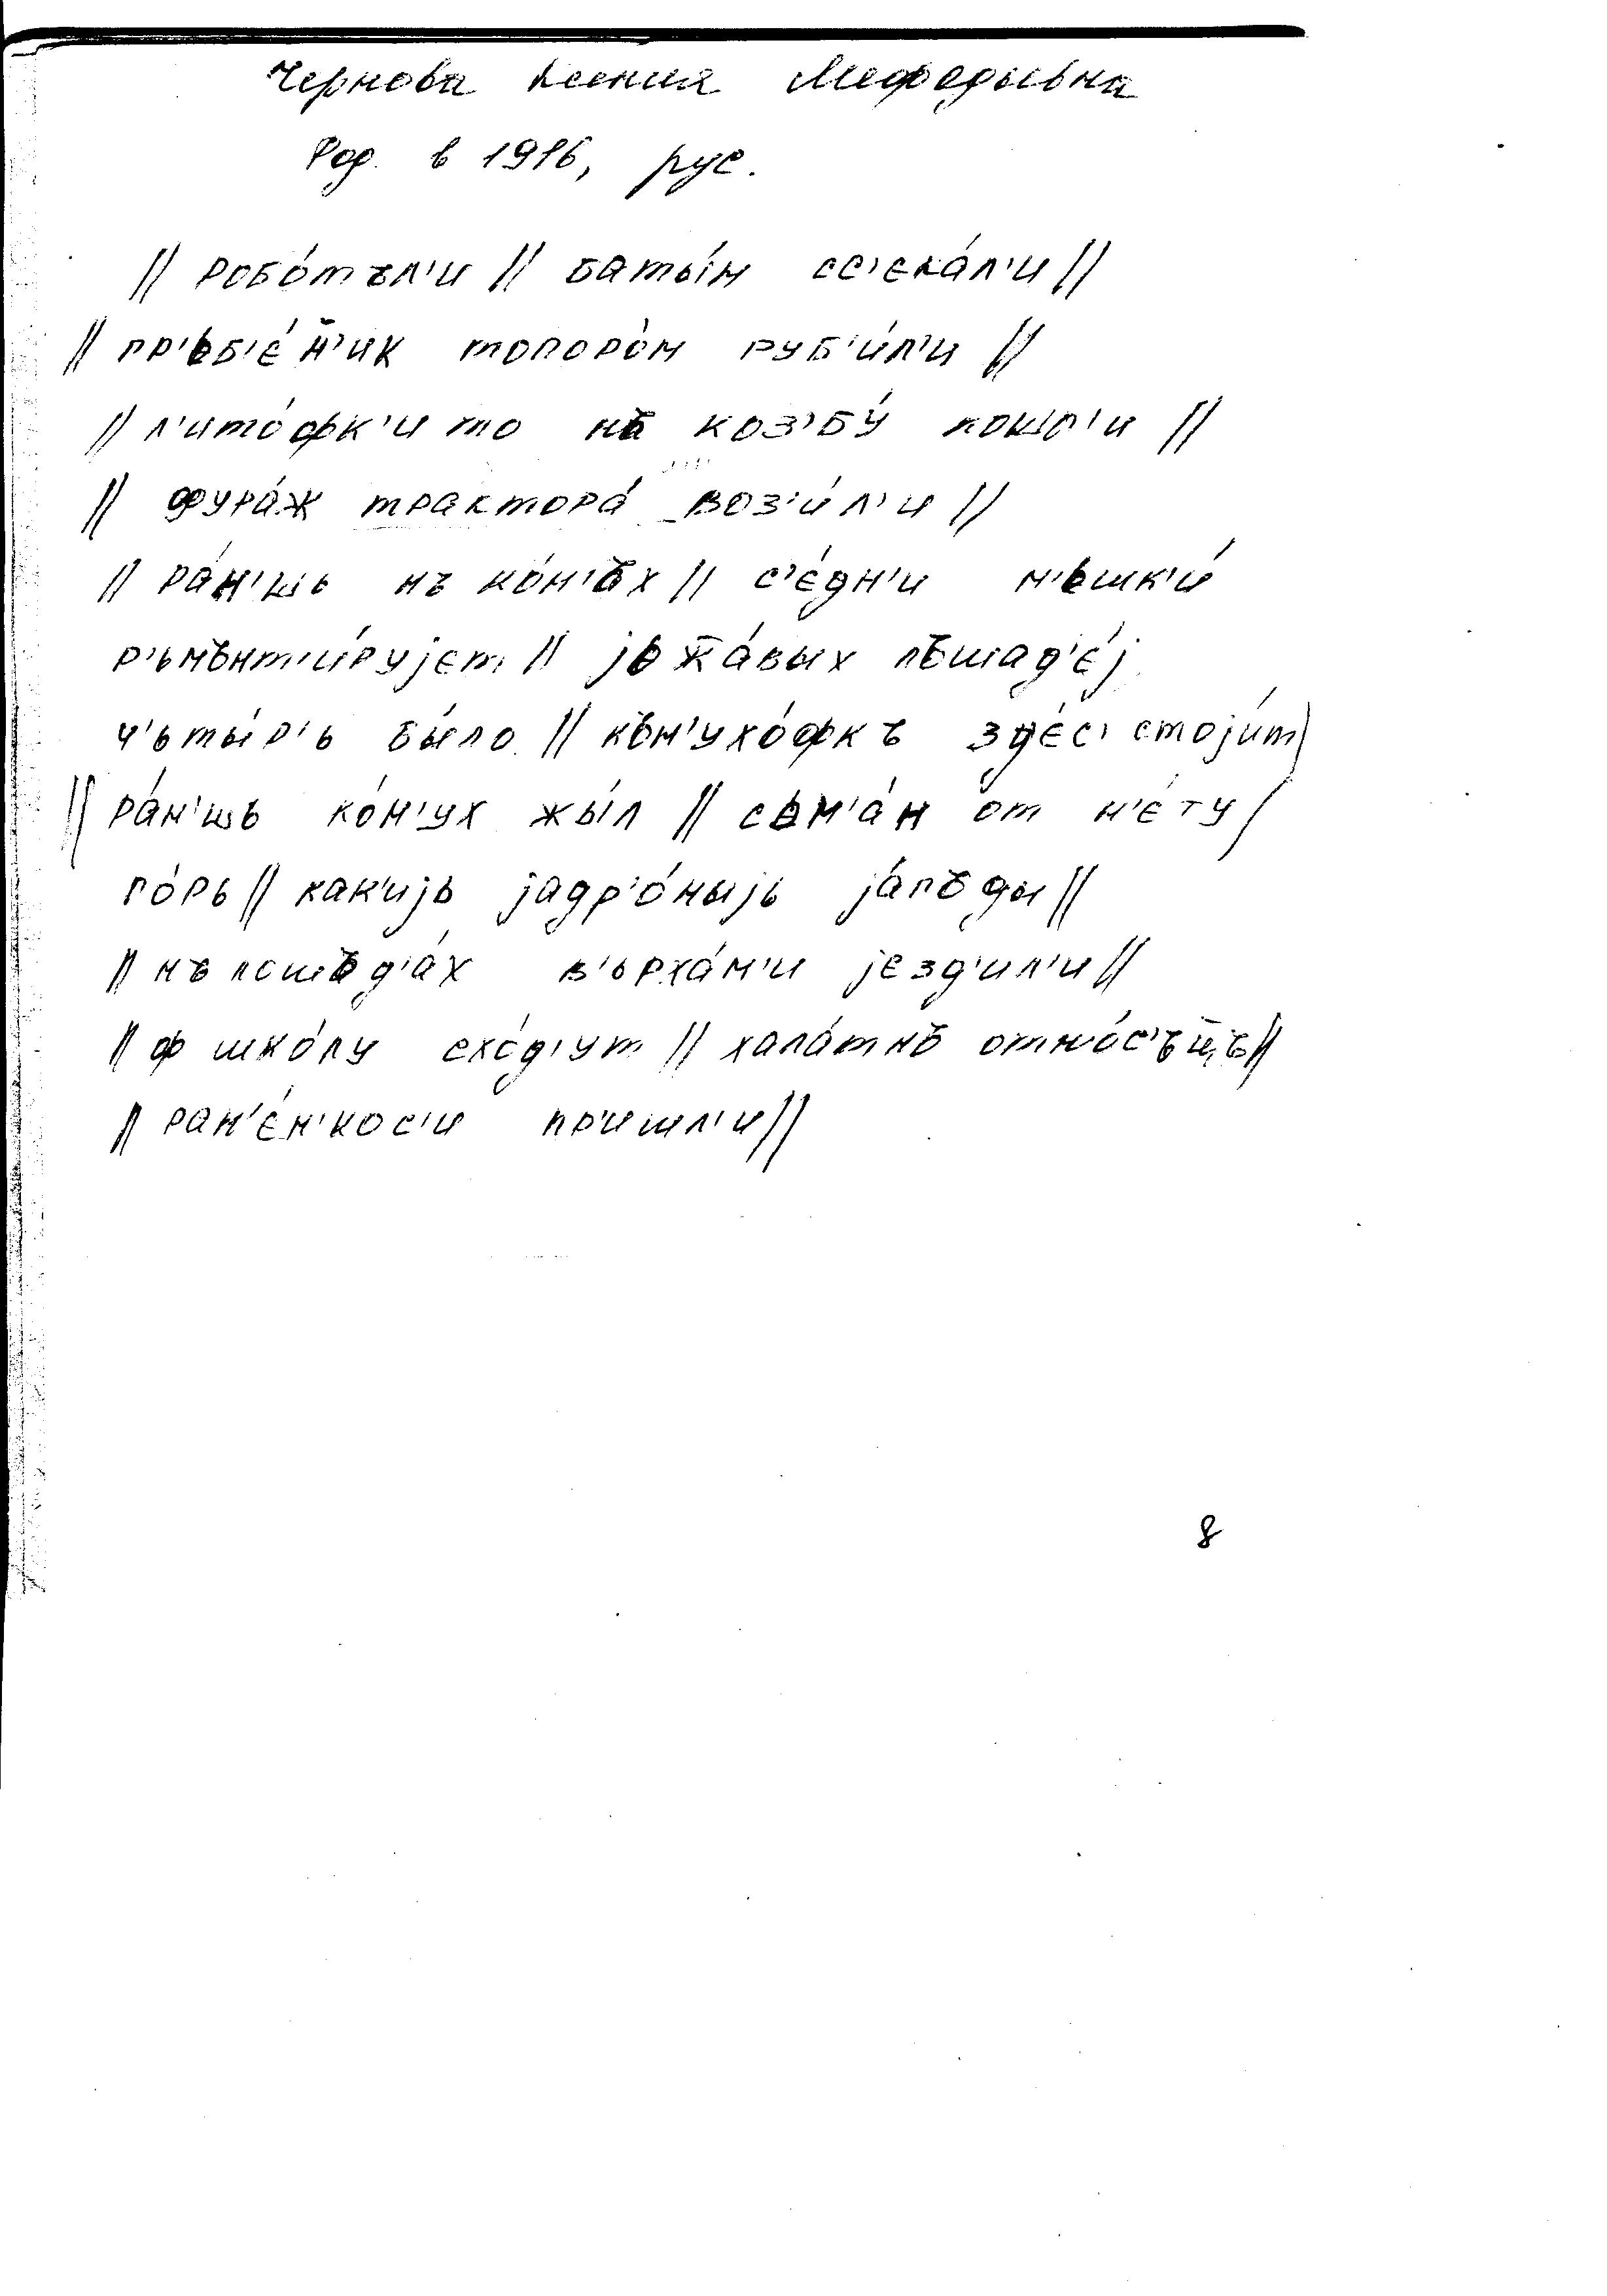 Чернова Ксения Мефодьевна
Род. в 1916, рус.
// робо́тъл'и // баты́г сс'ека́л'и //
// гр'ьб'е́н̄'ик топоро́м руб'и́л'и //
// л'ито́фк'и то нъ коз'бу́ пошл'и //
// фура́ж трактора́ воз'и́л'и //
// ра́н'шь нъ ко́н'ьх // с'е́дн'и м'ьшк'и́
р'ьмънт'и́рујет // јьж̄а́вых лъшад'е́ј
ч'ьты́р'ь бы́ло // кън'ухо́фкъ здес' стоји́т
// ра́н'шь ко́н'ух жы́л // сьм'а́н от н'е́ту /
го́рь // как'ијь јадр'о́ныјь ја́гъды //
// нъ лошъд'а́х в'ьрха́м'и језд'ил'и //
// ф шко́лу схо́д'ут // хала́тнъ отно́с'ьц̄ъ //
// ран'е́н'кос'и пр'ишл'и //
8